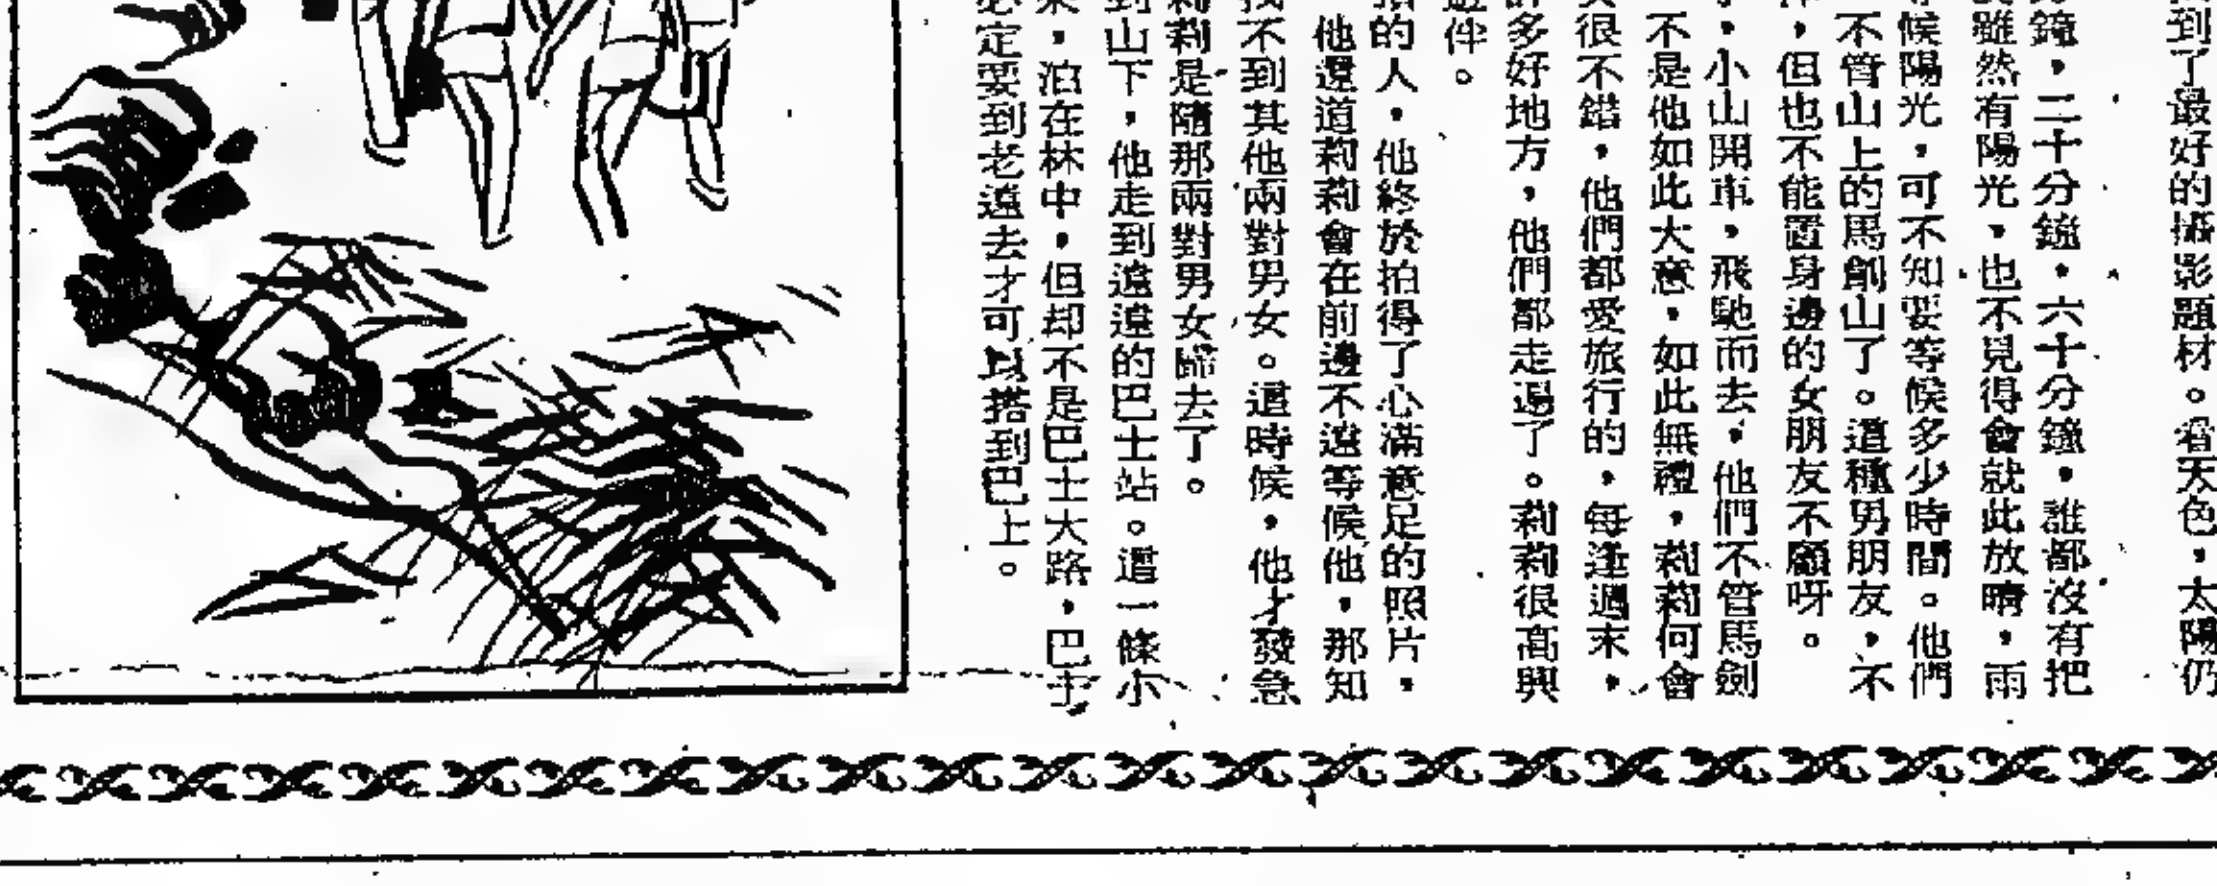 到了最好的攝影題材。看天色，太陽仍
鐘，二十分鐘，六十分鐘，誰都沒有把
雖然有陽光，也不見得會就此放晴，雨
候陽光，可不知要等候多少時間。他們
不管山上的馬劍山了。這種男朋友，不
，但也不能置身邊的女朋友不顧呀。
，小山開車，飛馳而去，他們不管馬劍
不是他如此大意，如此無禮，莉莉何會
很不錯，他們都愛旅行的，每逢週末，
許多好地方，他們都走遍了。莉莉很高興
遊伴。
的人，他終於拍得了心滿意足的照片，
他還道莉莉會在前邊不遠等候他，那知
找不到其他兩對男女。這時候，他才發急
莉莉是隨那兩對男女歸去了。
到山下，他走到遠遠的巴士站。這一條小
來，泊在林中，但却不是巴士大路，巴士
必定要到老遠去才可以搭到巴士。